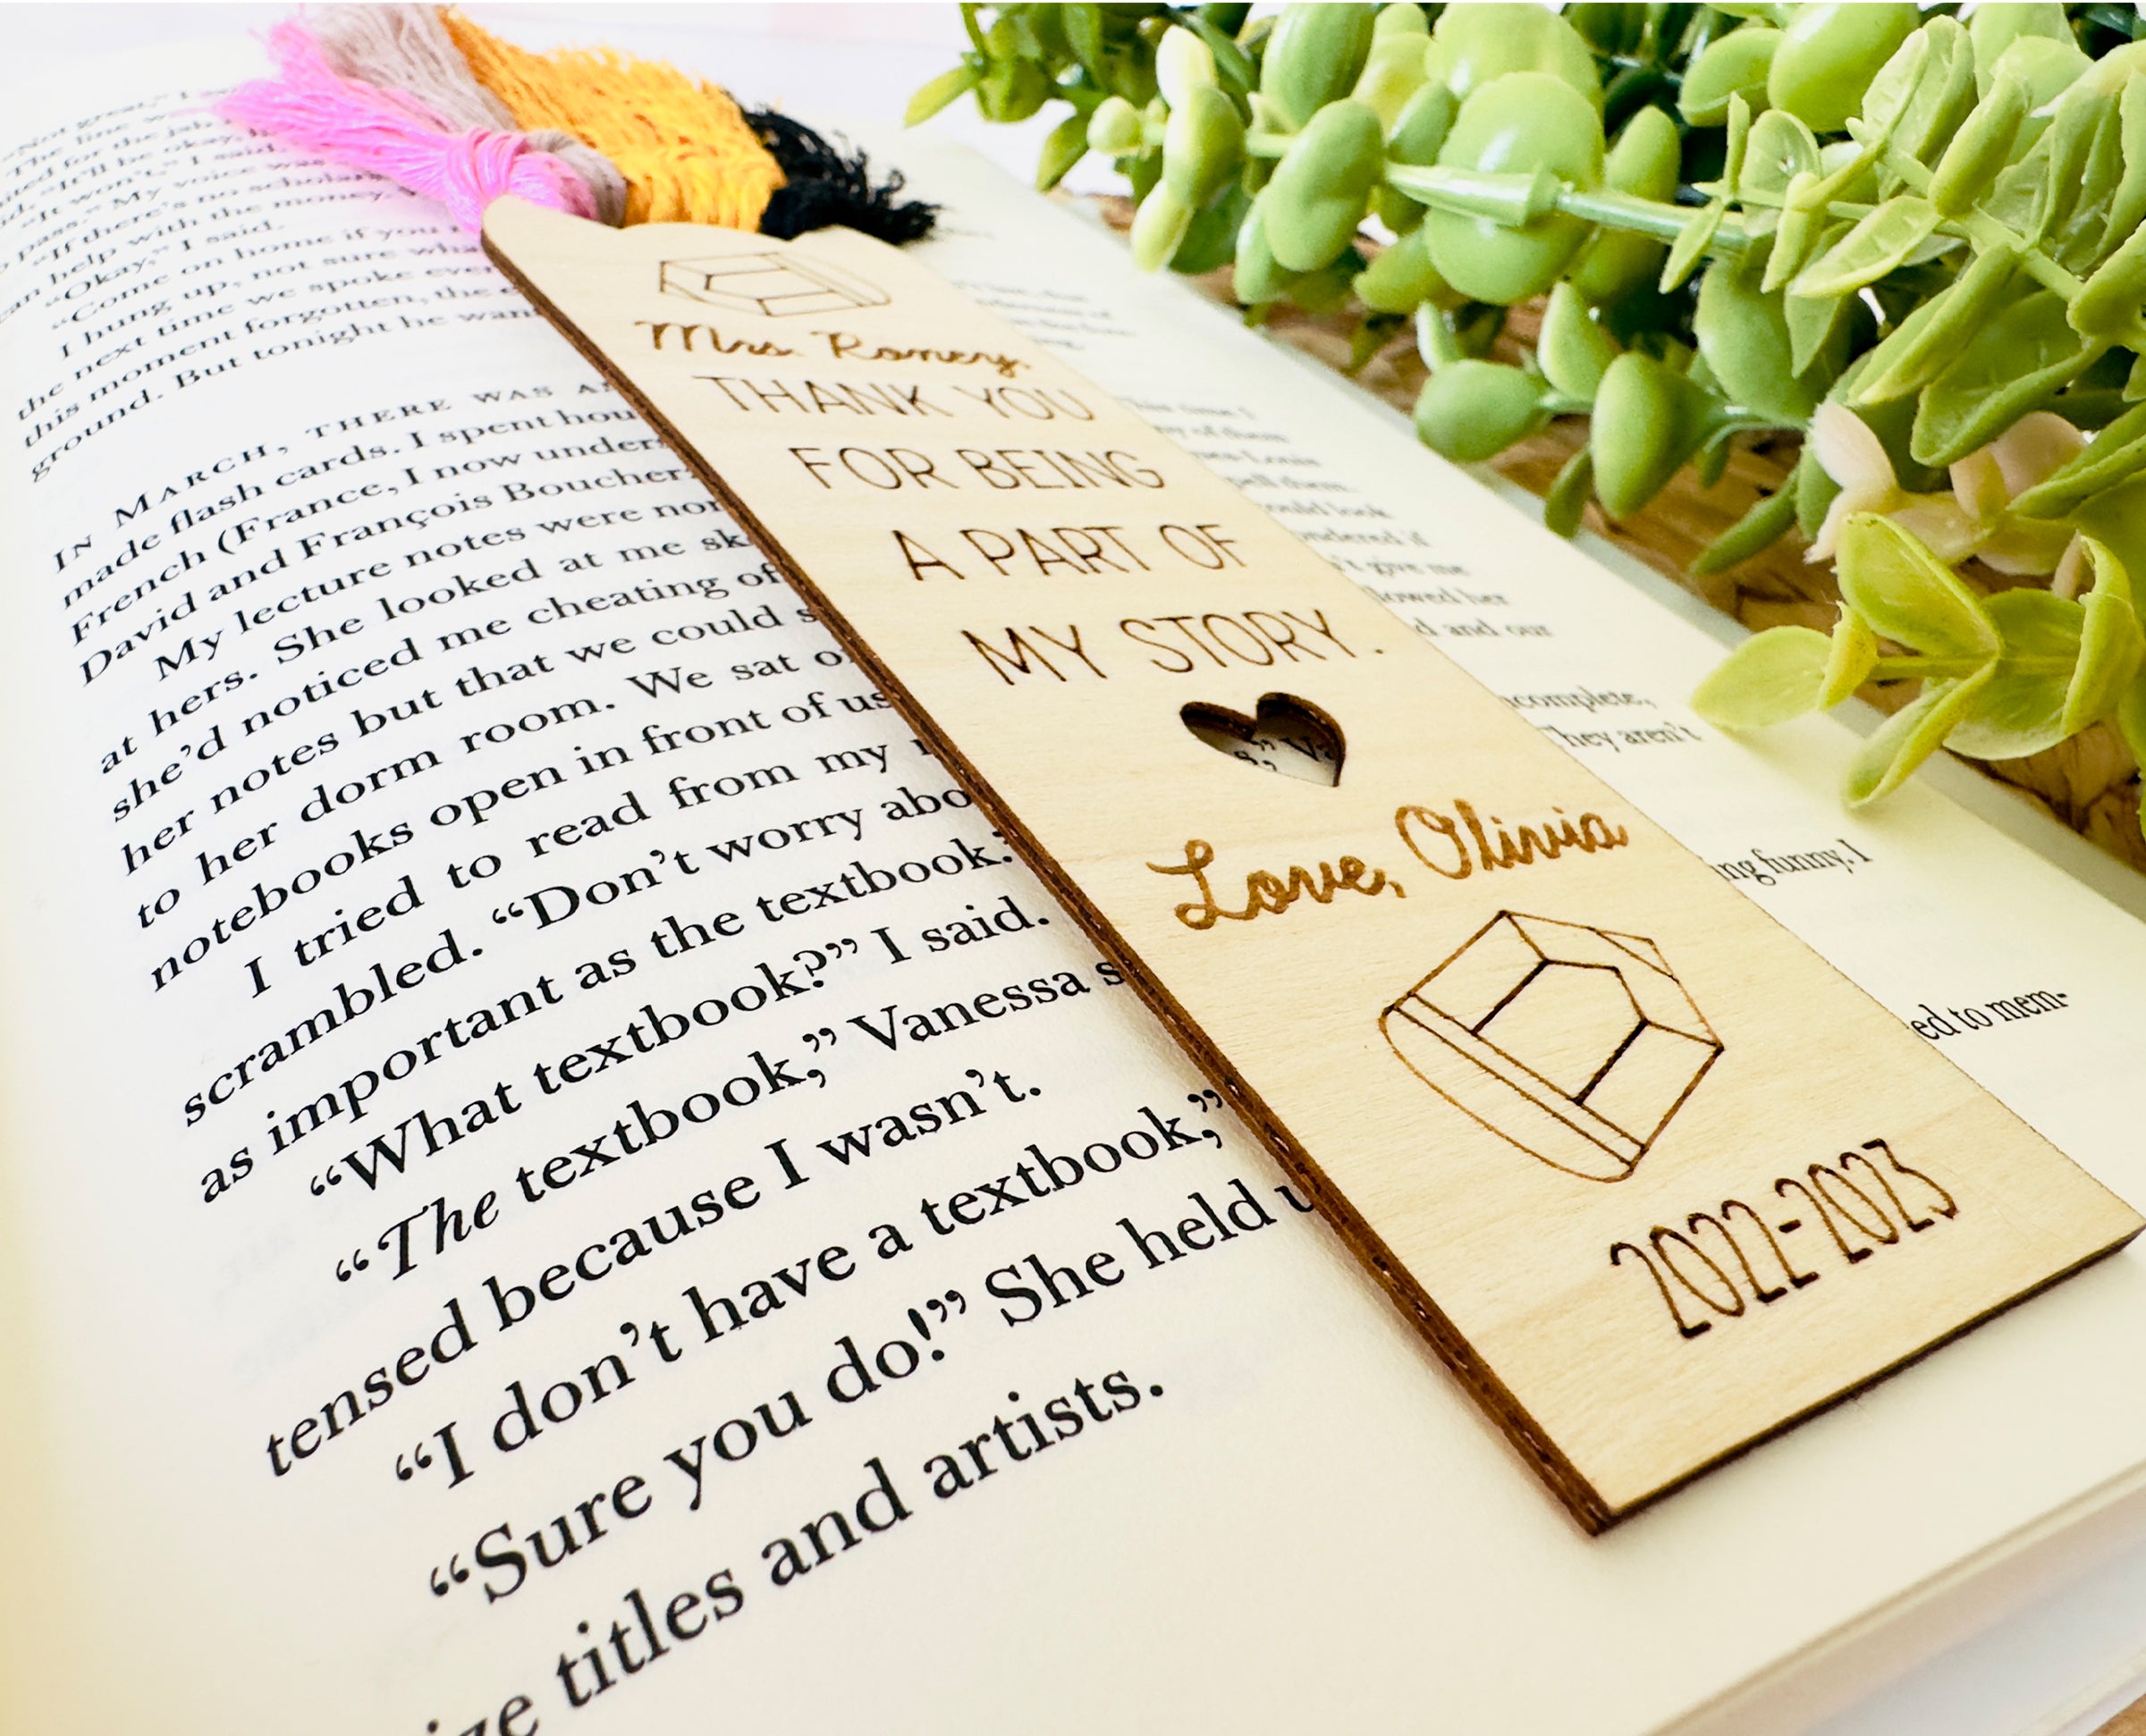 "Not great," I
The line w
"It'll be okay,
"It won't," I said.
pass." My voice was
"If there's no scholar
help with the money.
"Okay," I said.
"Come on home if you
I hung up, not sure wh
the next time we spoke ever
this moment forgotten, the
ground. But tonight he wan
IN MARCH, THERE WAS A
made flash cards. I spent hou
French (France, I now unders
David and François Boucher
My lecture notes were no
at hers. She looked at me sk
she'd noticed me cheating of
her notes but that we could s
to her dorm room. We sat o
notebooks open in front of us
I tried to read from my
scrambled. "Don't worry abo
as important as the textbook.
"What textbook?" I said.
"The textbook," Vanessa s
tensed because I wasn't.
"I don't have a textbook,"
"Sure you do!" She held u
ize titles and artists.
Mrs. Roney,
THANK YOU
FOR BEING
A PART OF
MY STORY.
s," Va
Love, Olivia
2022-2023
could look
't give me
llowed her
d and our
ncomplete,
They aren't
ng funny, I
ed to mem-